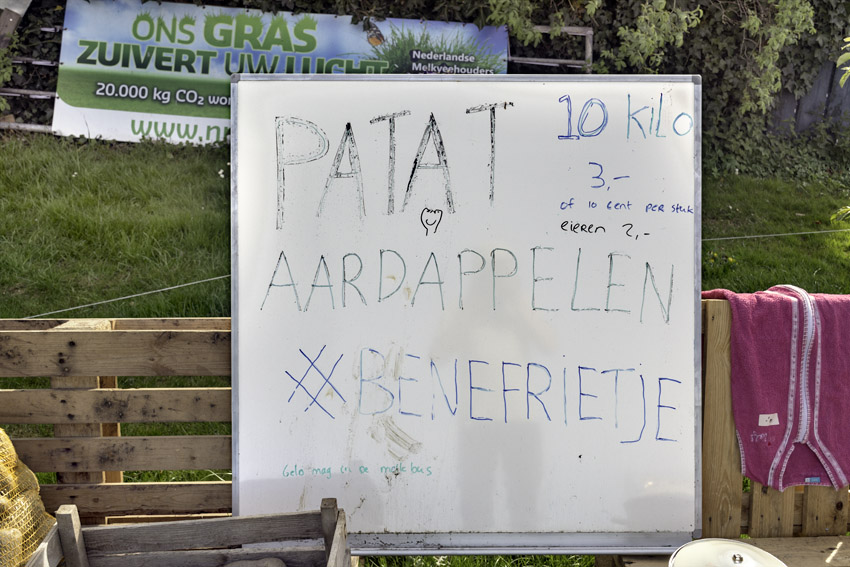 ONS GRAS
ZUIVERT UW LUCHT
Nederlandse
Melkveehouders
20.000 kg CO₂ wor
www.n
PATAT
10 KiLO
3,-
of 10 cent per stuk
eieren 2,-
AARDAPPELEN
#BENEFRiETJE
Geld mag in de melkbus